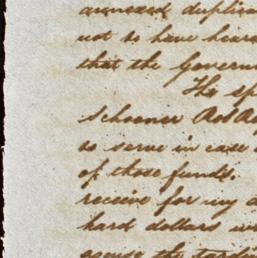 annexed duplica
not to have hear
that the Govern
The sp
Schooner
to serve in case
of those funds.
receive for my d
hard dollars w